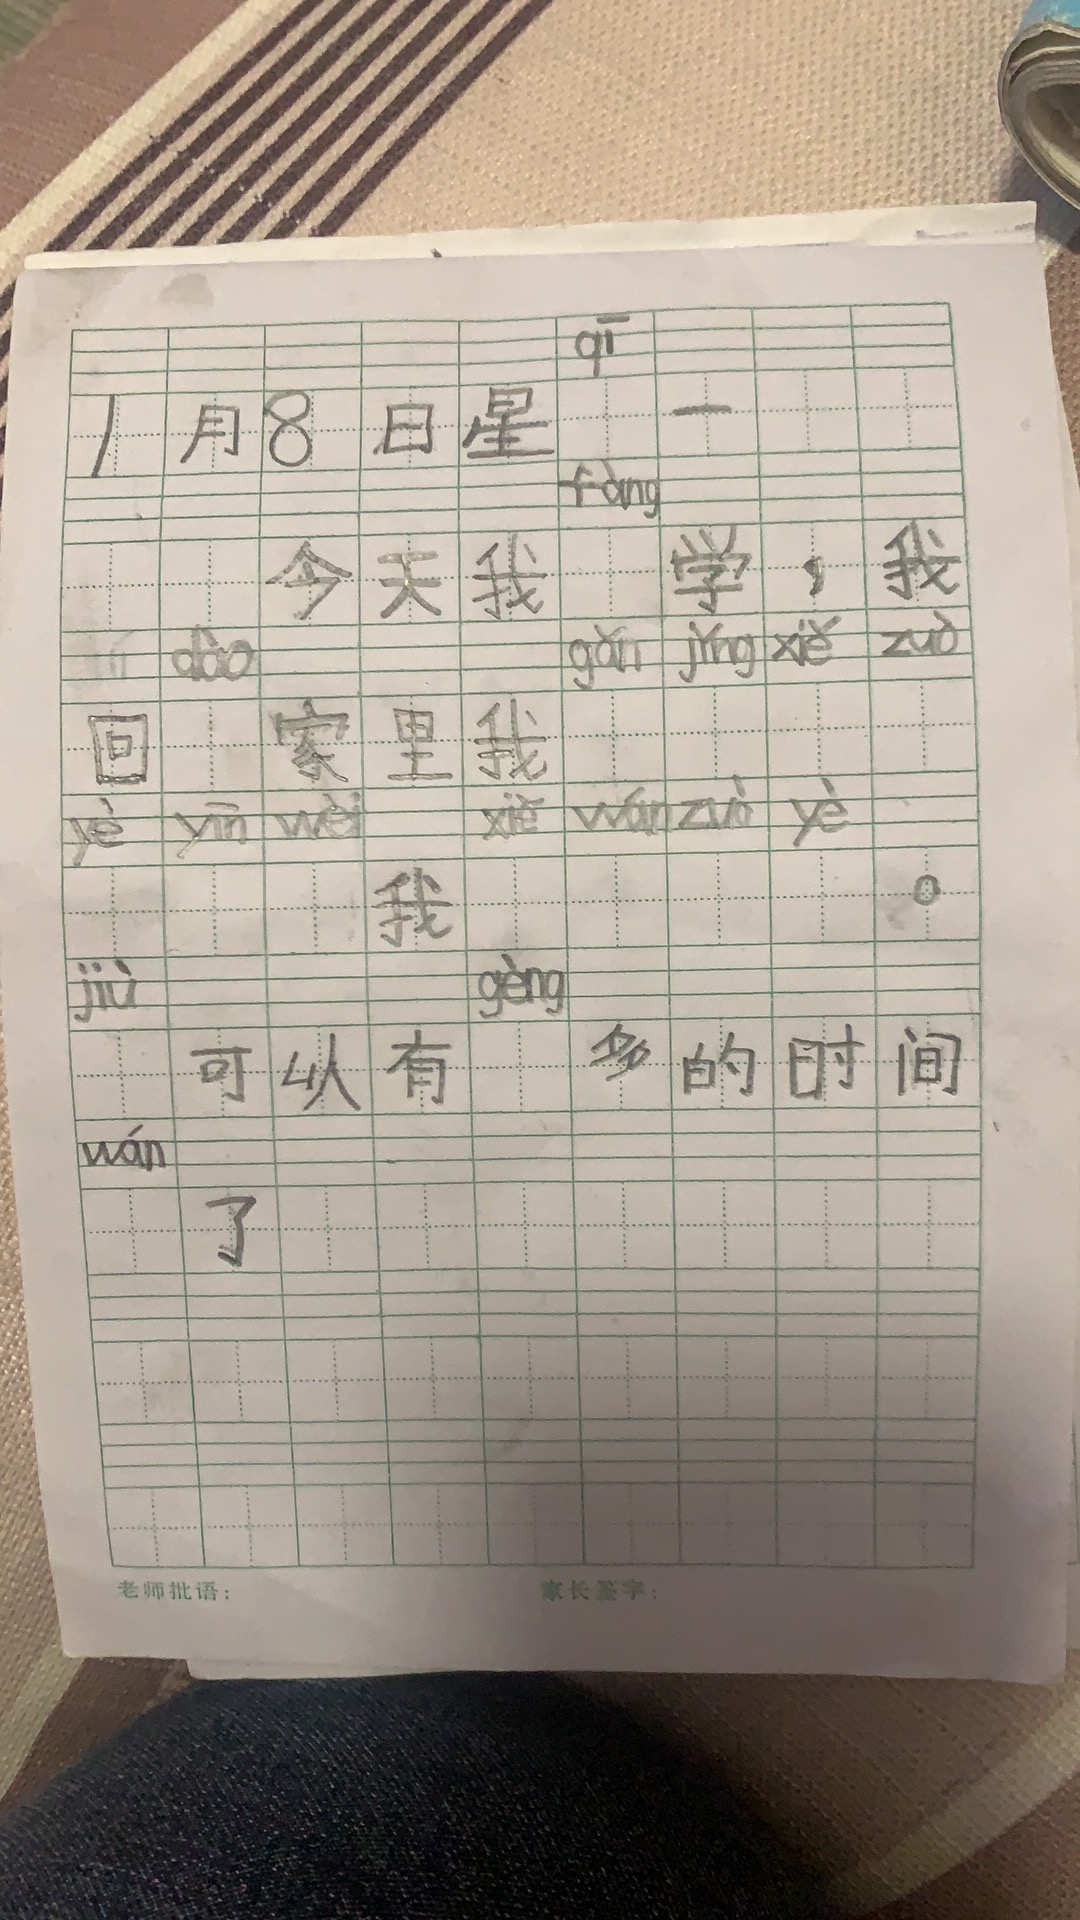 qī
1月8日星 一
fàng
今天我 学，我
dào gǎn jǐng xiě zuò
回 家里我
yè yīn wèi xiě wán zuò yè
我 。
jiù gèng
可以有 多的时间
wán
了
老师批语： 家长签字：